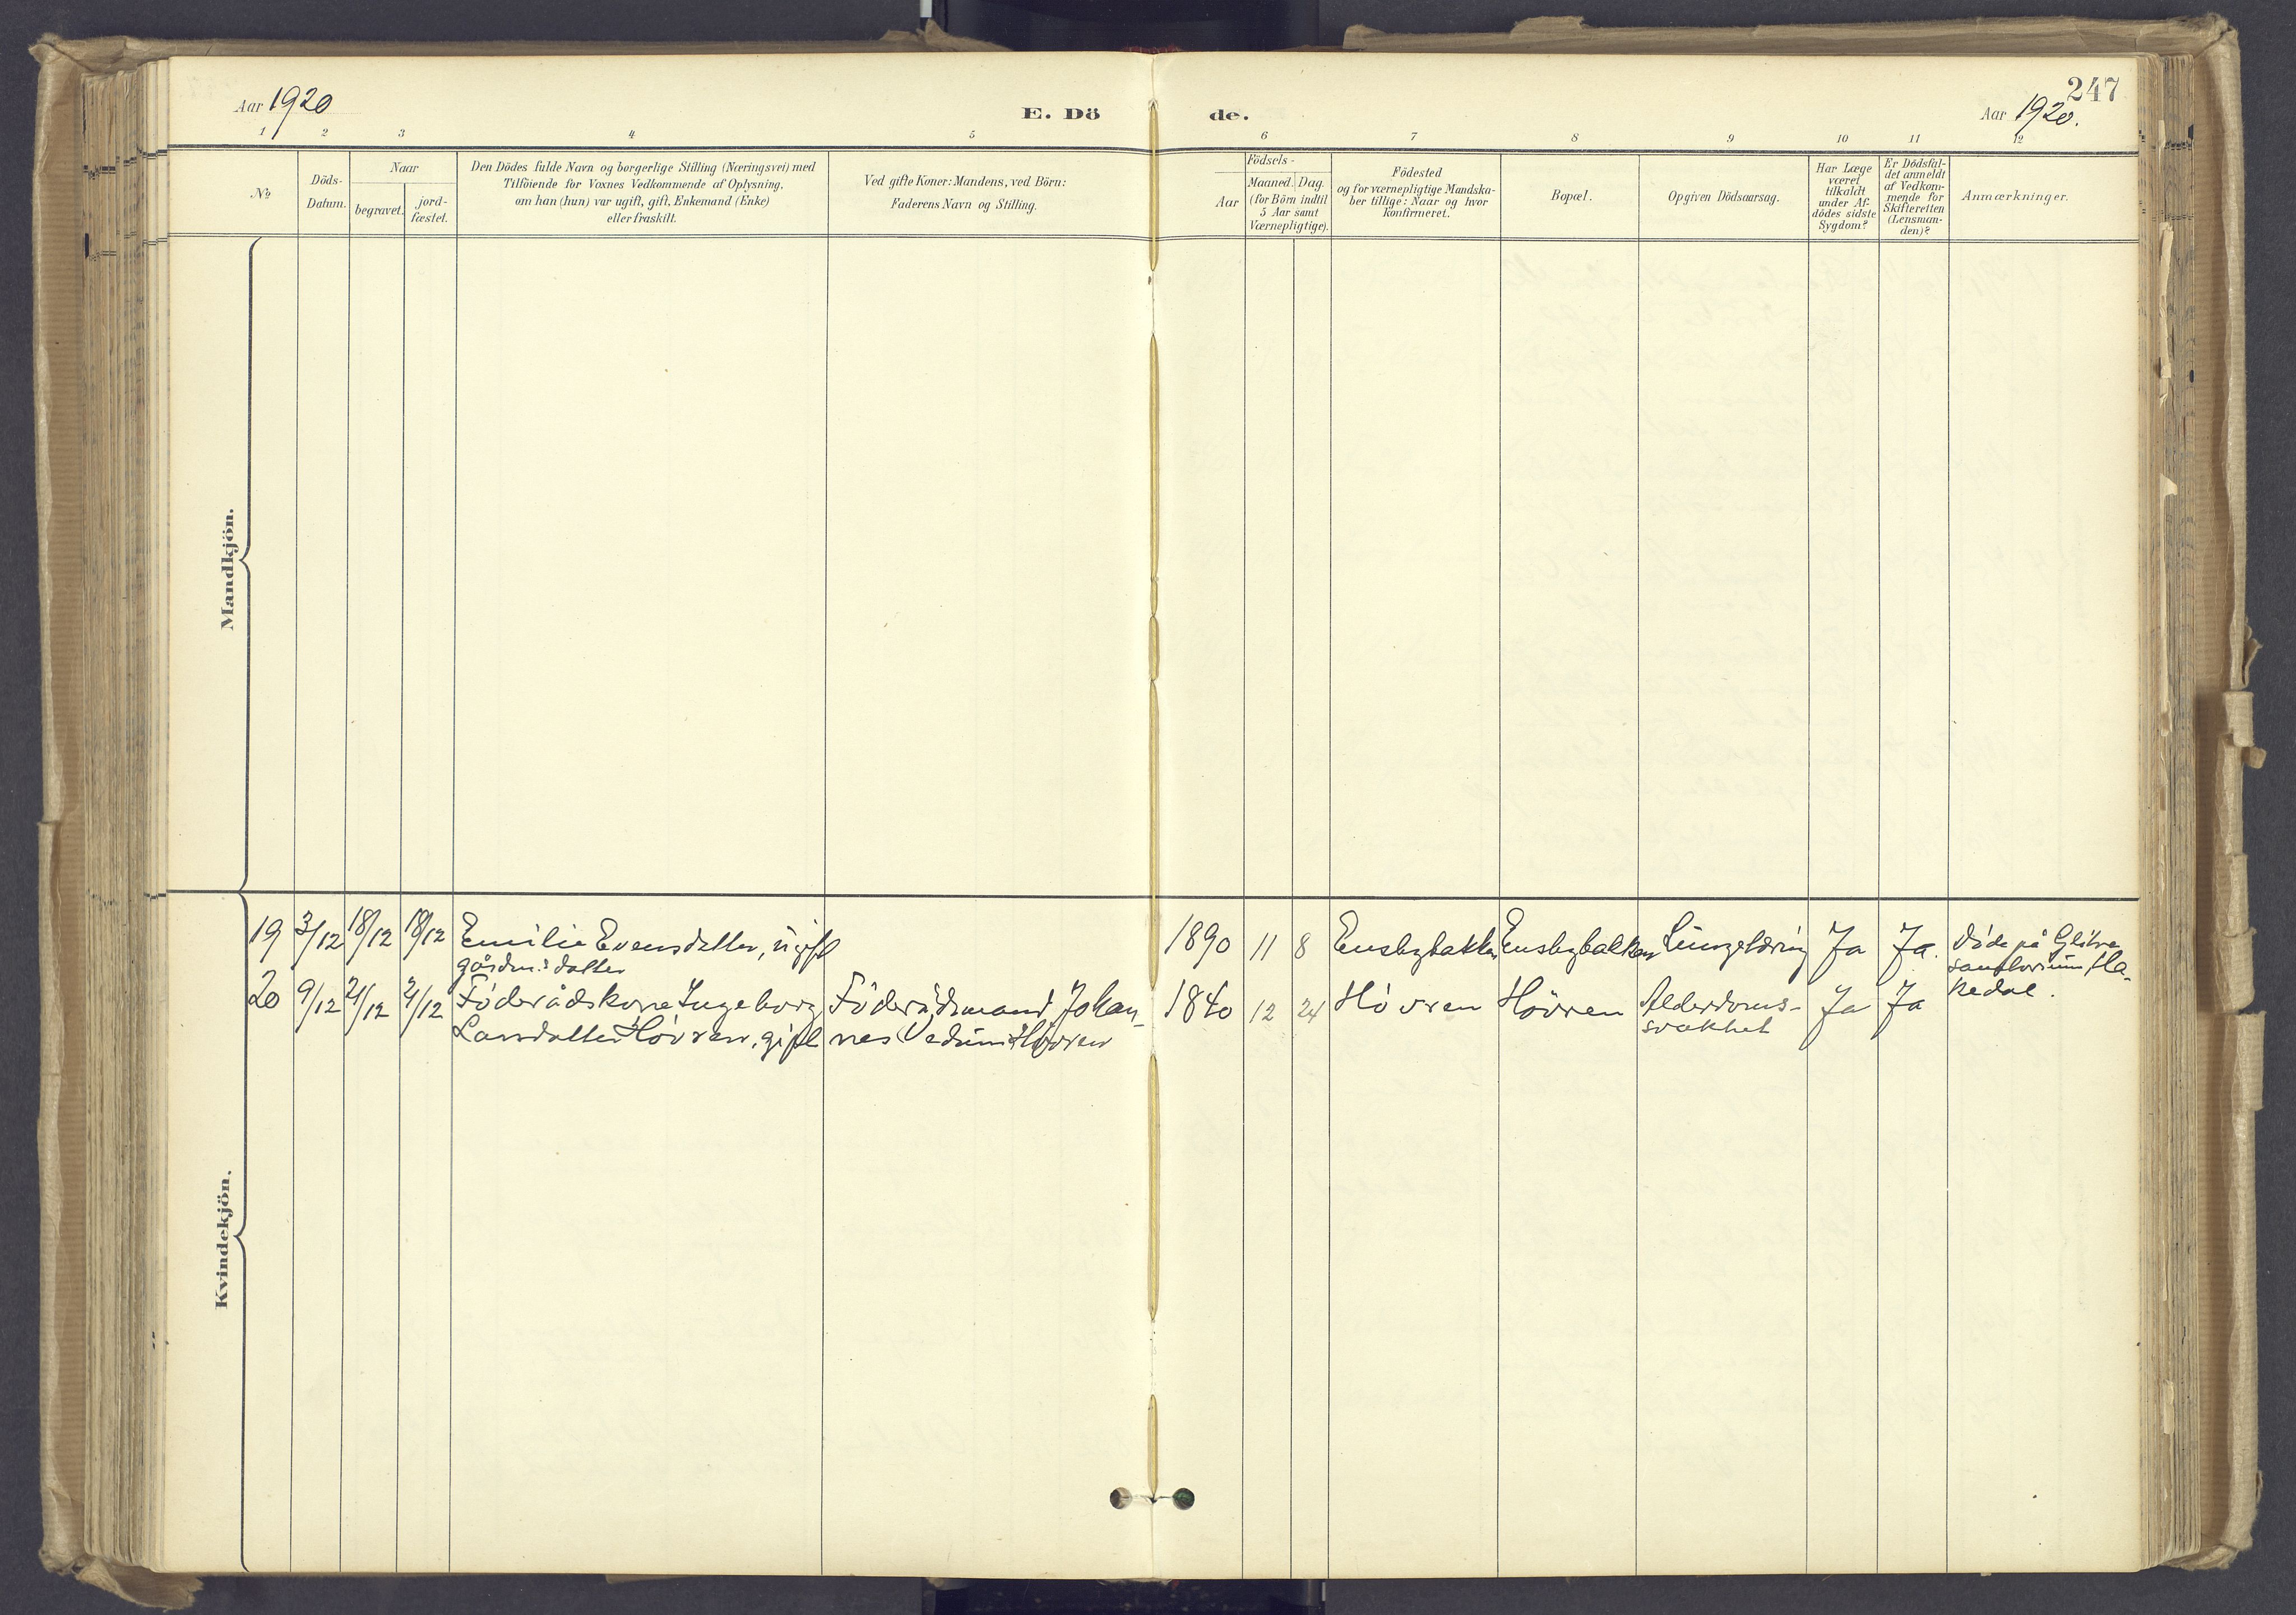 247
Aar 1920
E. Dö de.
Aar 1920.
1 2 3 4 5 6 7 8 9 10 11 12
No
Döds-
Datum.
Naar
begravet.
jord-
fæstet.
Den Dödes fulde Navn og borgerlige Stilling (Næringsvei) med
Tilföiende for Voxnes Vedkommende af Oplysning,
om han (hun) var ugift, gift, Enkemand (Enke)
eller fraskilt.
Ved gifte Koner: Mandens, ved Börn:
Faderens Navn og Stilling.
Aar
Födsels-
Maaned. Dag.
(for Börn indtil
5 Aar samt
Værnepligtige).
Födested
og for værnepligtige Mandska-
ber tillige: Naar og hvor
konfirmeret.
Bopæl.
Opgiven Dödsaarsag.
Har Læge
været
tilkaldt
under Af-
dödes sidste
Sygdom?
Er Dödsfal-
det anmeldt
af Vedkom-
mende for
Skifteretten
(Lensman-
den)?
Anmærkninger.
Mandkjön.
Kvindekjön.
19 3/12 18/12 18/12 Emilie Evensdatter, ugift 1890 11 8 Ensbybakken Ensbybakken Lungetæring Ja Ja. Døde på Glitre
gårdm.s datter sanatorium, Ha-
kedal.
20 9/12 21/12 21/12 Føderådskone Ingeborg Føderådsmand Johan- 1840 12 24 Hövren Hövren Alderdoms- Ja Ja
Larsdatter Hövren, gift nes Vedum Hövren svakhet